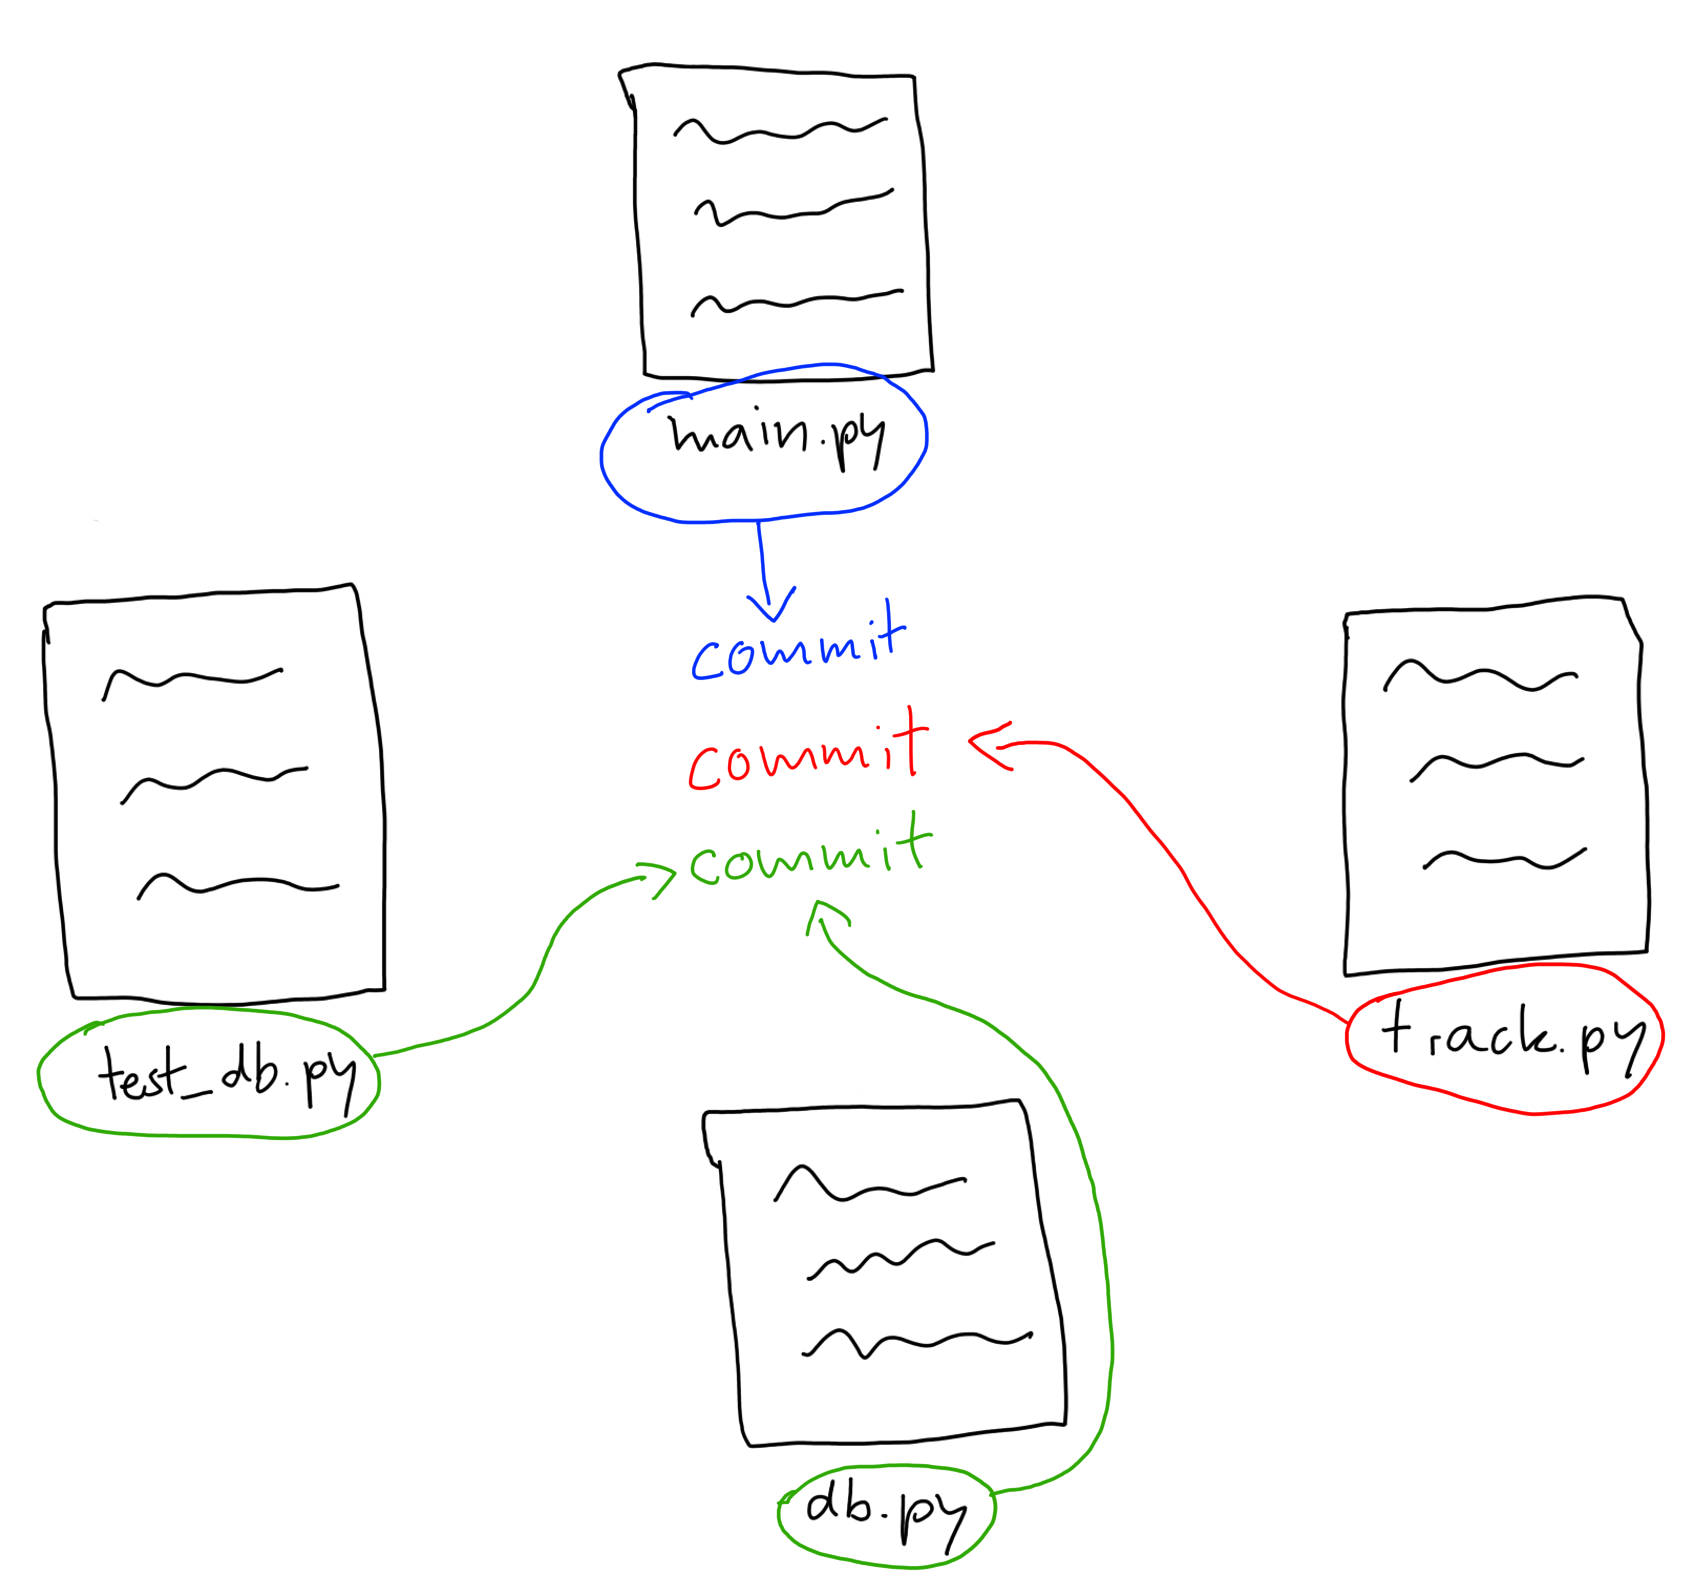 main.py
commit
commit
commit
test_db.py
track.py
db.py